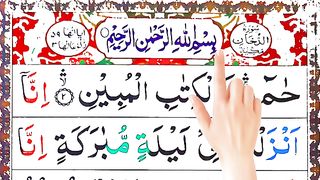 بِسْمِ اللّٰهِ الرَّحْمٰنِ الرَّحِيْمِ
حٰمٓ لْكِتٰبِ الْمُبِيْنِ ۝۲ اِنَّآ
اَنْزَلْ لَيْلَةٍ مُّبٰرَكَةٍ اِنَّا